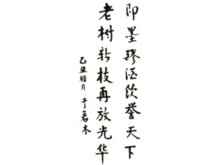 即墨醪酒饮誉天下
老树新枝再放光华
乙丑腊月 于若木